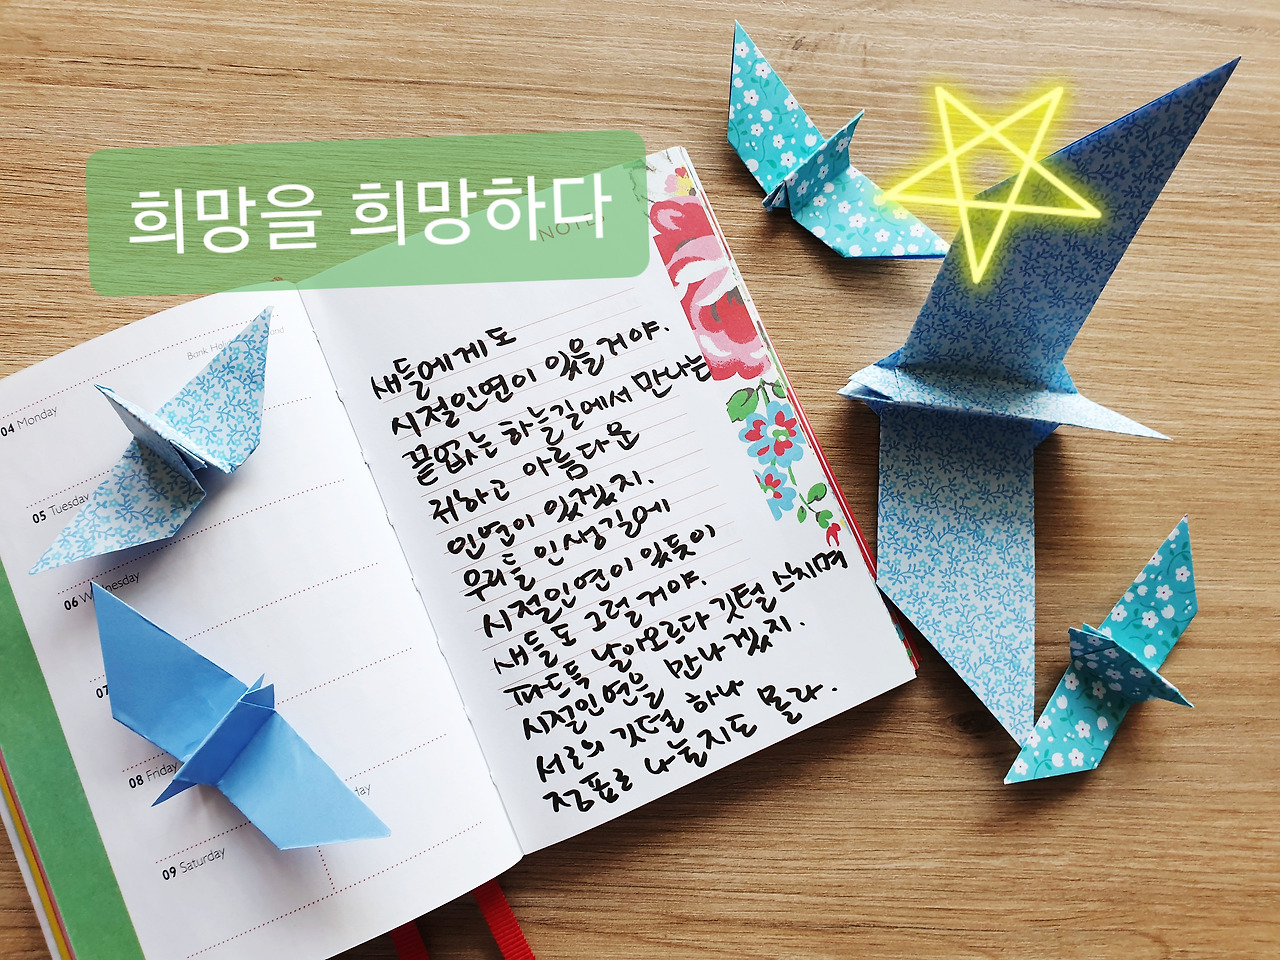 희망을 희망하다
NOTES
Bank Holiday
04 Monday
05 Tuesday
06 Wednesday
07
08 Friday
09 Saturday
새들에게도
시절인연이 있을거야.
끝없는 하늘길에서 만나는
귀하고 아름다운
인연이 있겠지.
우리들 인생길에
시절인연이 있듯이
새들도 그럴거야.
파드득 날아오르다 깃털 스치며
시절인연을 만나겠지.
서로의 깃털 하나
징표로 나눌지도 몰라.